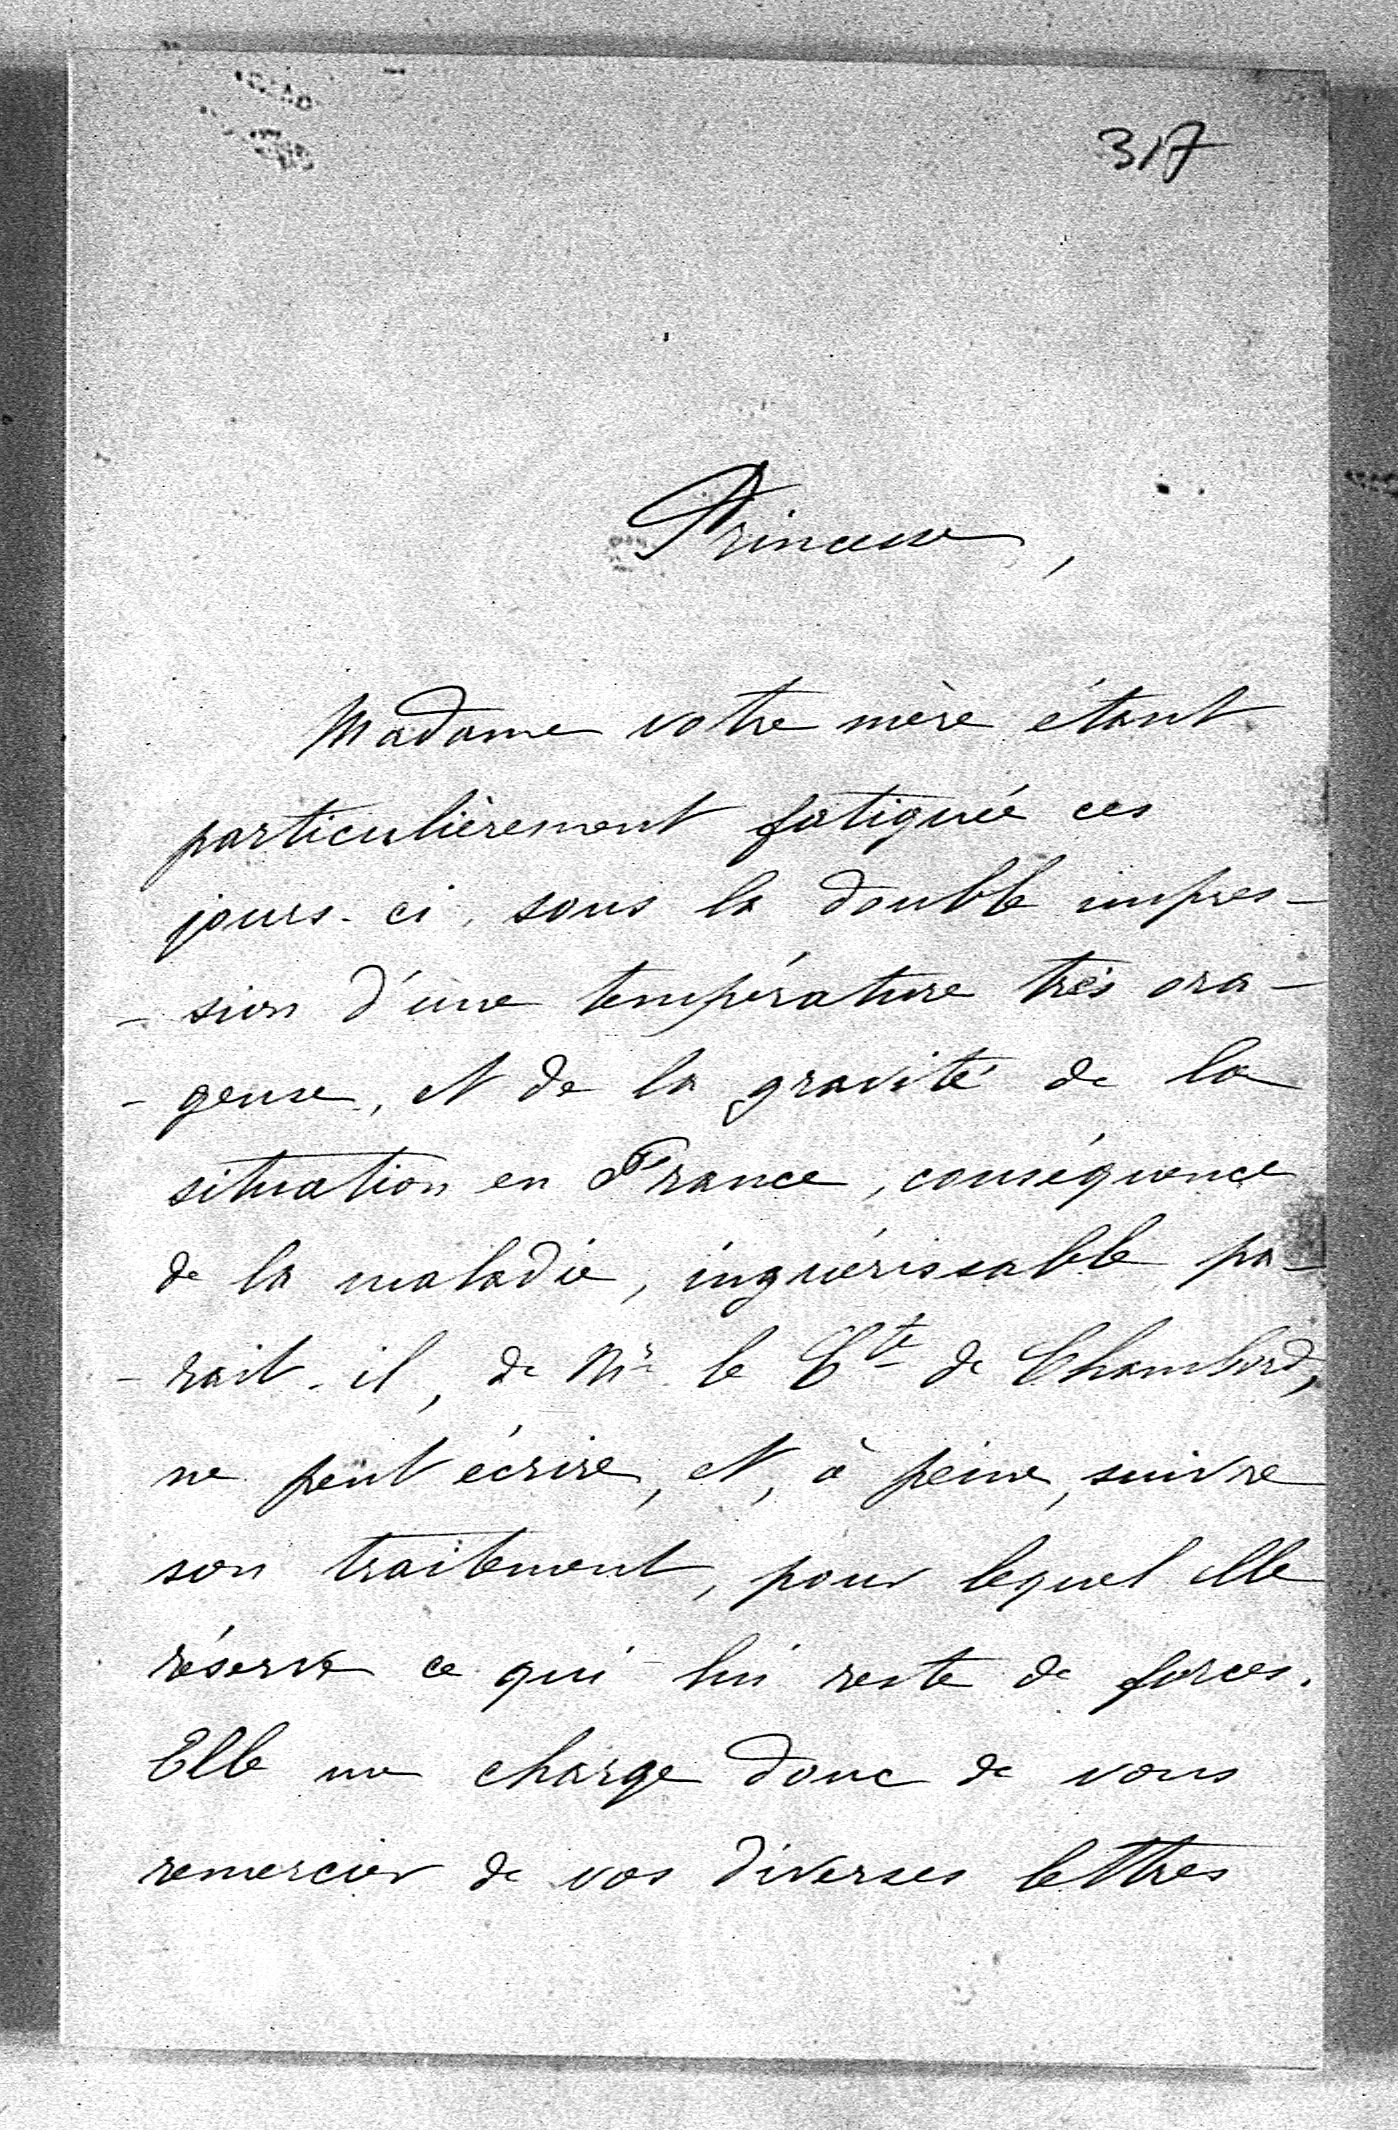 317
Princesse,
Madame votre mère étant
particulièrement fatiguée ces
jours-ci, sous la double impres-
- sion d'une température très ora-
- geuse, et de la gravité de la
situation en France, conséquence
de la maladie, inguérissable pa-
- rait-il, de Mr le Cte de Chambord,
ne peut écrire, et, à peine, suivre
son traitement, pour lequel elle
réserve ce qui lui reste de forces.
Elle me charge donc de vous
remercier de vos diverses lettres